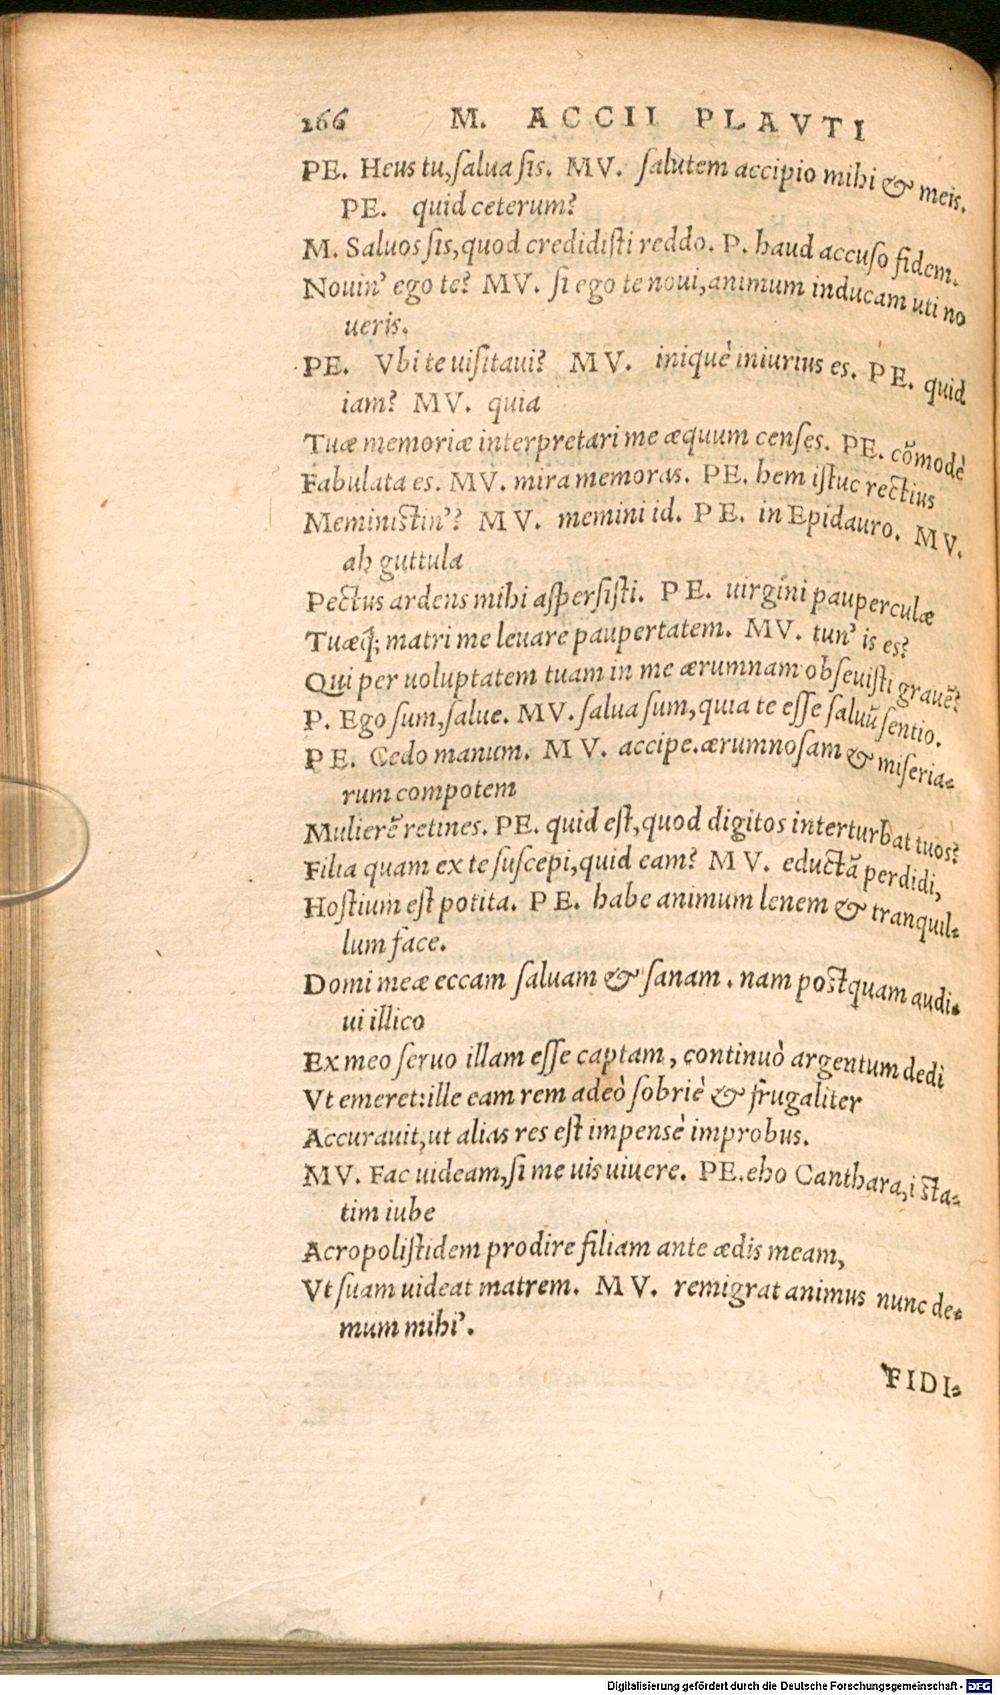 266 M. ACCII PLAVTI
PE. Heus tu, salua sis. MV. salutem accipio mihi & meis.
PE. quid ceterum?
M. Saluos sis, quod credidisti reddo. P. haud accuso fidem.
Nouin' ego te? MV. si ego te noui, animum inducam uti no
ueris.
PE. Vbi te uisitaui? MV. iniquè iniurius es. PE. quid
iam? MV. quia
Tuæ memoriæ interpretari me æquum censes. PE. cõmodè
Fabulata es. MV. mira memoras. PE. hem istuc rectius
Meministin'? MV. memini id. PE. in Epidauro. MV.
ah guttula
Pectus ardens mihi aspersisti. PE. uirgini pauperculæ
Tuæq́; matri me leuare paupertatem. MV. tun' is es?
Qui per uoluptatem tuam in me ærumnam obseuisti grauẽ?
P. Ego sum, salue. MV. salua sum, quia te esse saluũ sentio.
PE. Cedo manum. MV. accipe. ærumnosam & miseria-
rum compotem
Mulierẽ retines. PE. quid est, quod digitos interturbat tuos?
Filia quam ex te suscepi, quid eam? MV. eductã perdidi,
Hostium est potita. PE. habe animum lenem & tranquil-
lum face.
Domi meæ eccam saluam & sanam. nam postquam audi-
ui illico
Ex meo seruo illam esse captam, continuò argentum dedi
Vt emeret: ille eam rem adeò sobriè & frugaliter
Accurauit, ut alias res est impensè improbus.
MV. Fac uideam, si me uis uiuere. PE. eho Canthara, i sta-
tim iube
Acropolistidem prodire filiam ante ædis meam,
Vt suam uideat matrem. MV. remigrat animus nunc de-
mum mihi'.
FIDI-
Digitalisierung gefördert durch die Deutsche Forschungsgemeinschaft - DFG